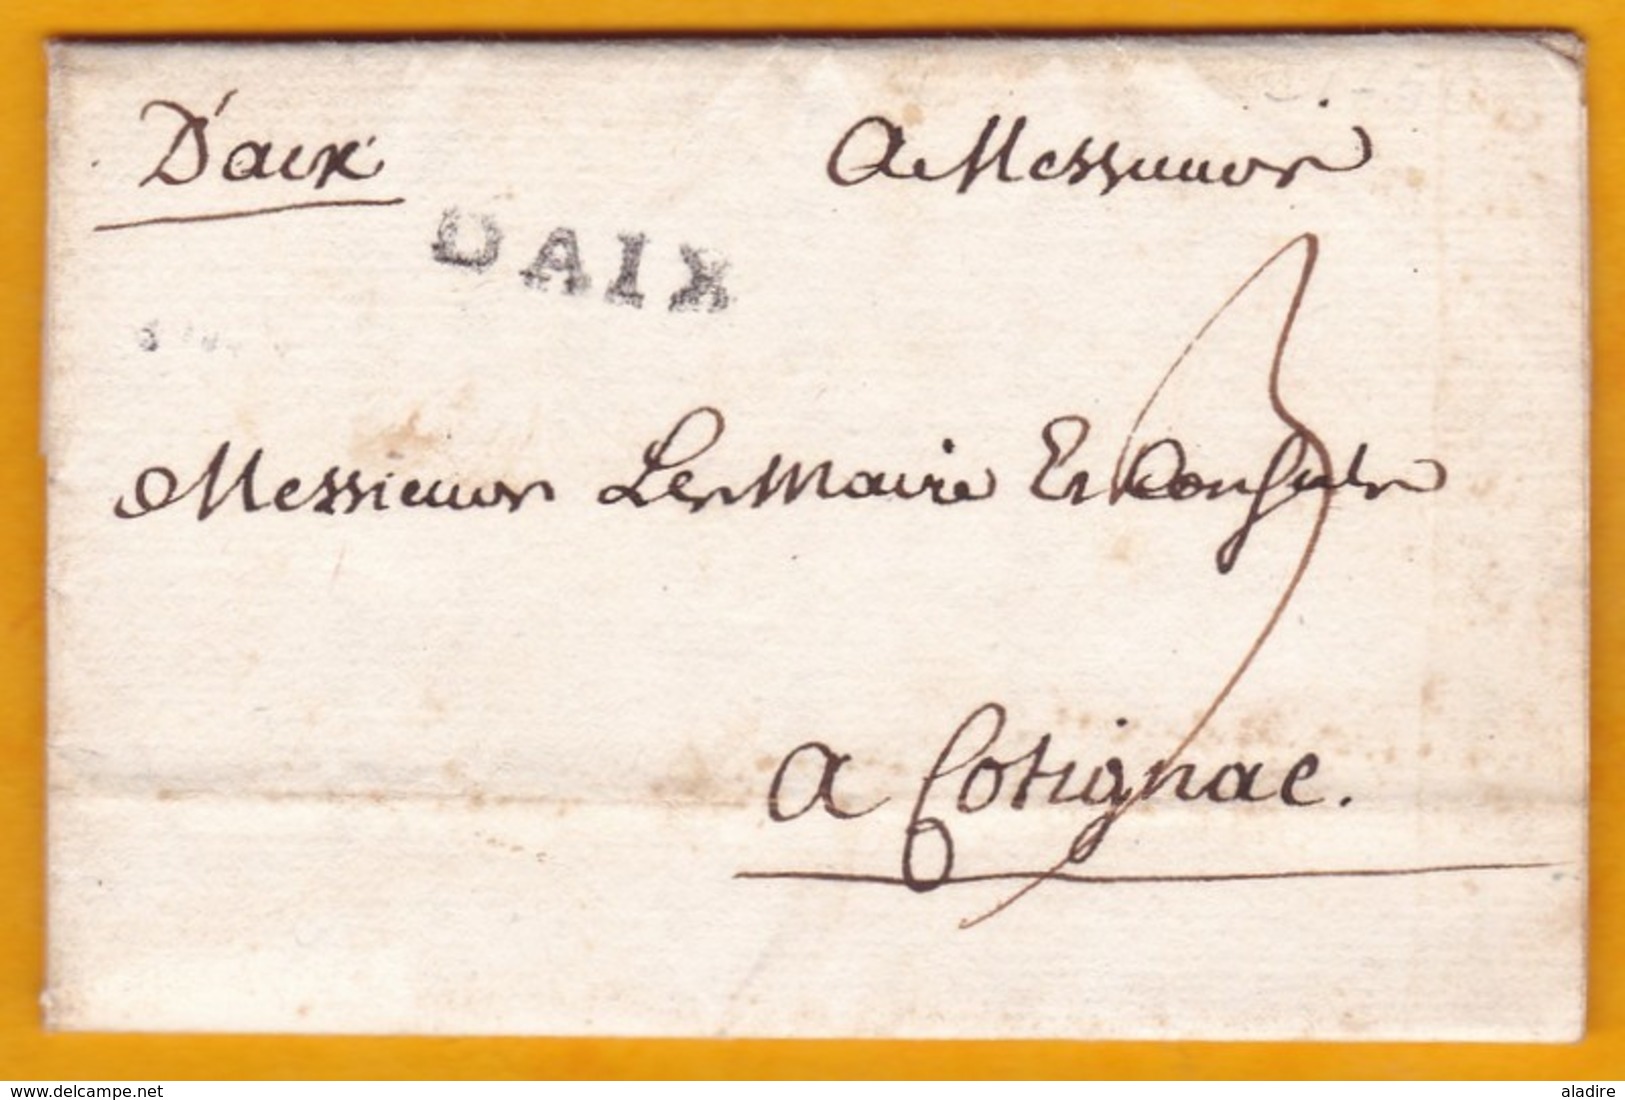 D'aix
A Messieurs
DAIX
3
Messieurs Les Maire Et Consuls
A Cotignac.
www.delcampe.net
aladire